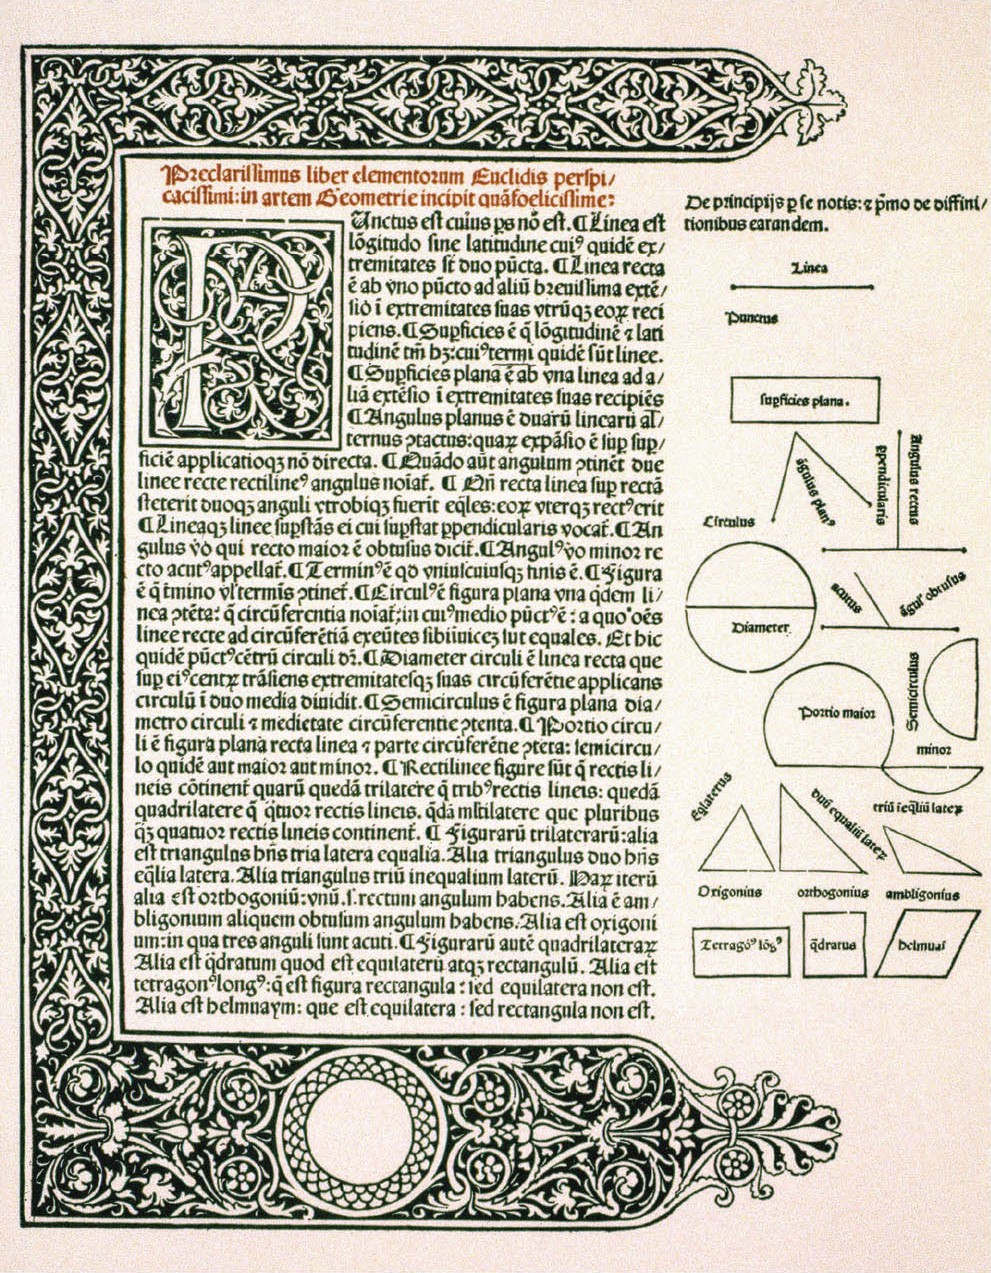 Preclarissimus liber elementorum Euclidis perspi/
cacissimi: in artem Geometrie incipit quãfoelicissime:
PUnctus est cuius ps nõ est. ¶ Linea est
lõgitudo sine latitudine cuiꝰ quidẽ ex/
tremitates sĩ duo pũcta. ¶ Linea recta
ẽ ab vno pũcto ad aliũ breuissima extẽ/
siõ ĩ extremitates suas vtrũqꝫ eoꝝ reci
piens. ¶ Supficies ẽ q̃ lõgitudinẽ ⁊ lati
tudinẽ tm̃ hꝫ: cuiꝰ termi quidẽ sũt linee.
¶ Supficies plana ẽ ab vna linea ad a/
liã extẽsio ĩ extremitates suas recipiẽs
¶ Angulus planus ẽ duarũ linearũ al̃/
ternus ꝯtactus: quaꝝ expãsio ẽ sup sup/
ficiẽ applicatioqꝫ nõ directa. ¶ Quãdo aũt angulum ꝯtinẽt due
linee recte rectilineꝰ angulus noiat̃. ¶ Qñ recta linea sup rectã
steterit duoqꝫ anguli vtrobiqꝫ fuerit eq̃les: eoꝝ vterqꝫ rectꝰ erit
¶ Lineaqꝫ linee supstãs ei cui supstat ppendicularis vocat̃. ¶ An
gulus vò qui recto maior ẽ obtusus dicit̃. ¶ Angulꝰ vo minor re
cto acutꝰ appellat̃. ¶ Terminꝰ ẽ qd vniuscuiusqꝫ finis ẽ. ¶ Figura
ẽ q̃ tmino vl̃ termĩs ꝯtinet̃. ¶ Circulꝰ ẽ figura plana vna q̃dem li/
nea ꝯtẽta: q̃ circũferentia noiat̃: in cuiꝰ medio pũctꝰ ẽ: a quo oẽs
linee recte ad circũferẽtiã exeũtes sibiĩuicẽ sut equales. Et hic
quidẽ pũctꝰ cẽtrũ circuli dr̃. ¶ Diameter circuli ẽ linea recta que
sup eiꝰ centꝝ trãsiens extremitatesqꝫ suas circũferẽtie applicans
circulũ ĩ duo media diuidit. ¶ Semicirculus ẽ figura plana dia/
metro circuli ⁊ medietate circũferentie ꝯtenta. ¶ Portio circu/
li ẽ figura plana recta linea ⁊ parte circũferẽtie ꝯtẽta: semicircu/
lo quidẽ aut maior aut minor. ¶ Rectilinee figure sũt q̃ rectis li/
neis cõtinent̃ quarũ quedã trilatere q̃ tribꝰ rectis lineis: quedã
quadrilatere q̃ q̃tuor rectis lineis. q̃dã mltilatere que pluribus
q̃ꝫ quatuor rectis lineis continent̃. ¶ Figurarũ trilaterarũ: alia
est triangulus hñs tria latera equalia. Alia triangulus duo hñs
eq̃lia latera. Alia triangulus triũ inequalium laterũ. Haꝝ iterũ
alia est orthogoniũ: vnũ .s. rectum angulum habens. Alia ẽ am/
bligonium aliquem obtusum angulum habens. Alia est oxigoni
um: in qua tres anguli sunt acuti. ¶ Figurarũ autẽ quadrilateraꝝ
Alia est q̃dratum quod est equilaterũ atqꝫ rectangulũ. Alia est
tetragonꝰ longꝰ: q̃ est figura rectangula: sed equilatera non est.
Alia est helmuaym: que est equilatera: sed rectangula non est.
De principijs p se notis: ⁊ p̃mo de diffini/
tionibus earandem.
Linea
Punctus
supficies plana.
ãgulus planꝰ
ppendicularis
Angulus rectus
Circulus
Diameter
acutus
ãgulꝰ obtusus
Portio maior
Semicirculus
minor
Eq̃laterus
duũ equaliũ lateꝝ
triũ ĩeq̃liũ lateꝝ
Oxigonius
orthogonius
ambligonius
Tetragõꝰ lõgꝰ
q̃dratus
helmuaĩ